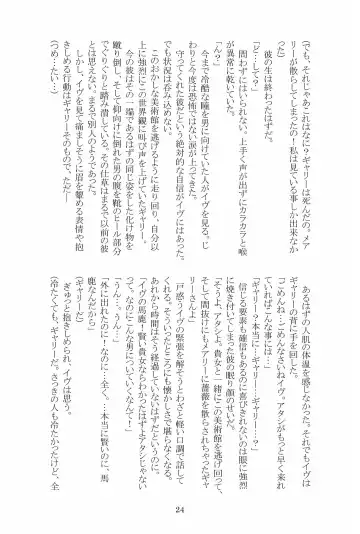 (でも、それじゃあこれはなに？ギャリーは死んだの。メア
リーが散らしてしまったの、私は見ている事しか出来なか
った)
彼の生は終わったはずだ。
「ど…して？」
問わずにはいられない。上手く声が出ずにカラカラと喉
が異常に乾いていた。
「ん？」
今まで冷酷な瞳を男に向けていた人がイヴを見る。じ
わりと今度は恐怖ではない涙が上ってきた。
守ってくれた彼だという絶対的な自信がイヴにはあった。
でも状況は呑み込めない。
このおかしな美術館を逃げるように走り回り、自分以
上に強烈にこの世界観に叫び声を上げていたギャリー。
今の彼はその一端であるはずの同じ姿をした化け物を
蹴り倒し、そして仰向けに倒れた男の腹を靴のヒール部分
でぐりぐりと踏み潰している。その仕草はまるで以前の彼
とは思えない。まるで別人のようであった。
しかし、イヴを見て痛ましそうに眉を顰める表情や抱
きしめる行動はギャリーそのもので、ただ――
(つめ…たい…)
あるはずの人肌の体温を感じなかった。それでもイヴは
ギャリーの背に手を回した。
「ごめんね…ごめんなさいねイヴ。アタシがもっと早く来れ
ていればこんな事には…」
「ギャリー？本当に…ギャリー…ギャリー…？」
信じる要素も確信もあるのに喜びきれないのは眼に強烈
に焼き付いてしまった彼の眠り顔のせいだ。
「そうよ、アタシよ。貴女と一緒にこの美術館を逃げ回って、
そして間抜けにもメアリーに薔薇を散らされちゃったギャ
リーさんよ」
戸惑うイヴの緊張を解そうとわざと軽い口調で話して
くれる。そういったところにも懐かしさで堪らなくなる。
あれから時間はそう経過していないはずだというのに。
「イヴの馬鹿！賢い貴女ならわかったはずよアタシじゃない
って。なのにこんな男についていくなんて！」
「うん…、うん…」
「外に出れたのに！なのに…全く…本当に賢いのに、馬
鹿なんだから」
(ギャリーだ)
ぎゅっと抱きしめられ、イヴは思う。
(冷たくても、ギャリーだ。さっきの人も冷たかったけど、全
24